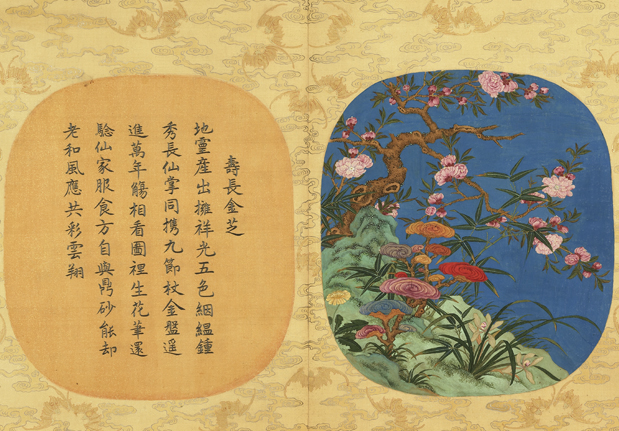 壽長金芝
地靈産出擁祥光五色絪緼鍾
秀長仙掌同携九節杖金盤遥
進萬年觴相看圖裡生花筆還
驗仙家服食方自與鼎砂能却
老和風應共彩雲翔